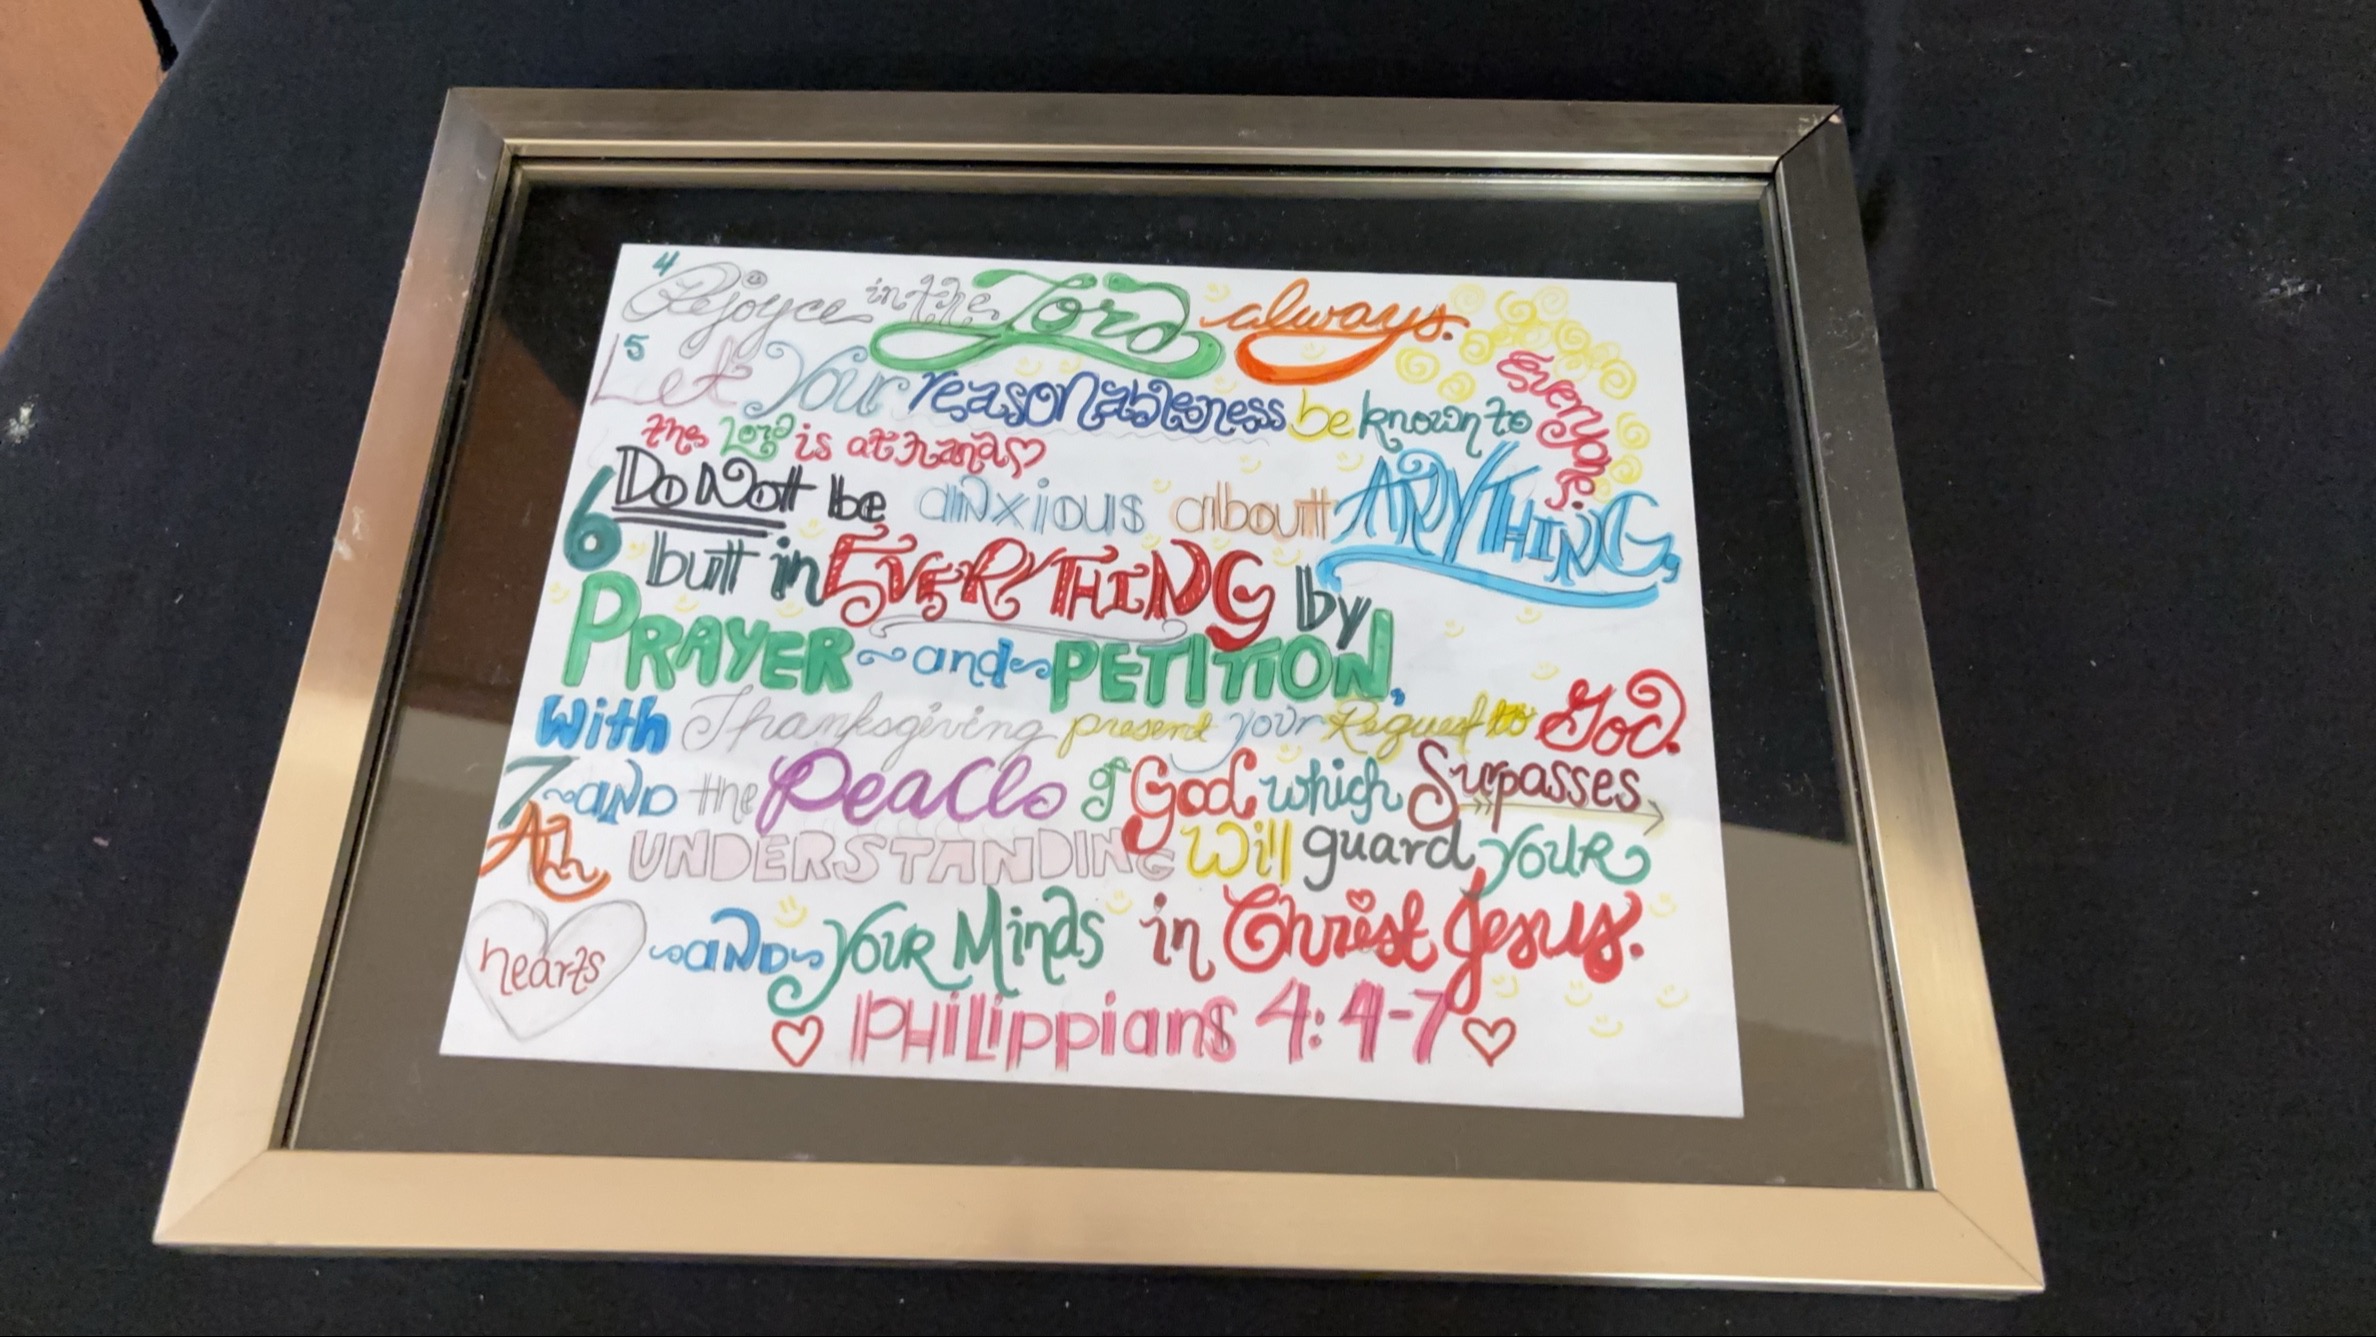 4 Rejoyce in the Lord always.
5 Let your reasonableness be known to everyone.
the Lord is at hand
6 Do Not be anxious about ANYTHING,
but in EVERYTHING by
PRAYER and PETITION,
With Thanksgiving present your Request to God.
7 and the Peace of God which Surpasses
All UNDERSTANDING Will guard your
hearts and your Minds in Christ Jesus.
Philippians 4:4-7